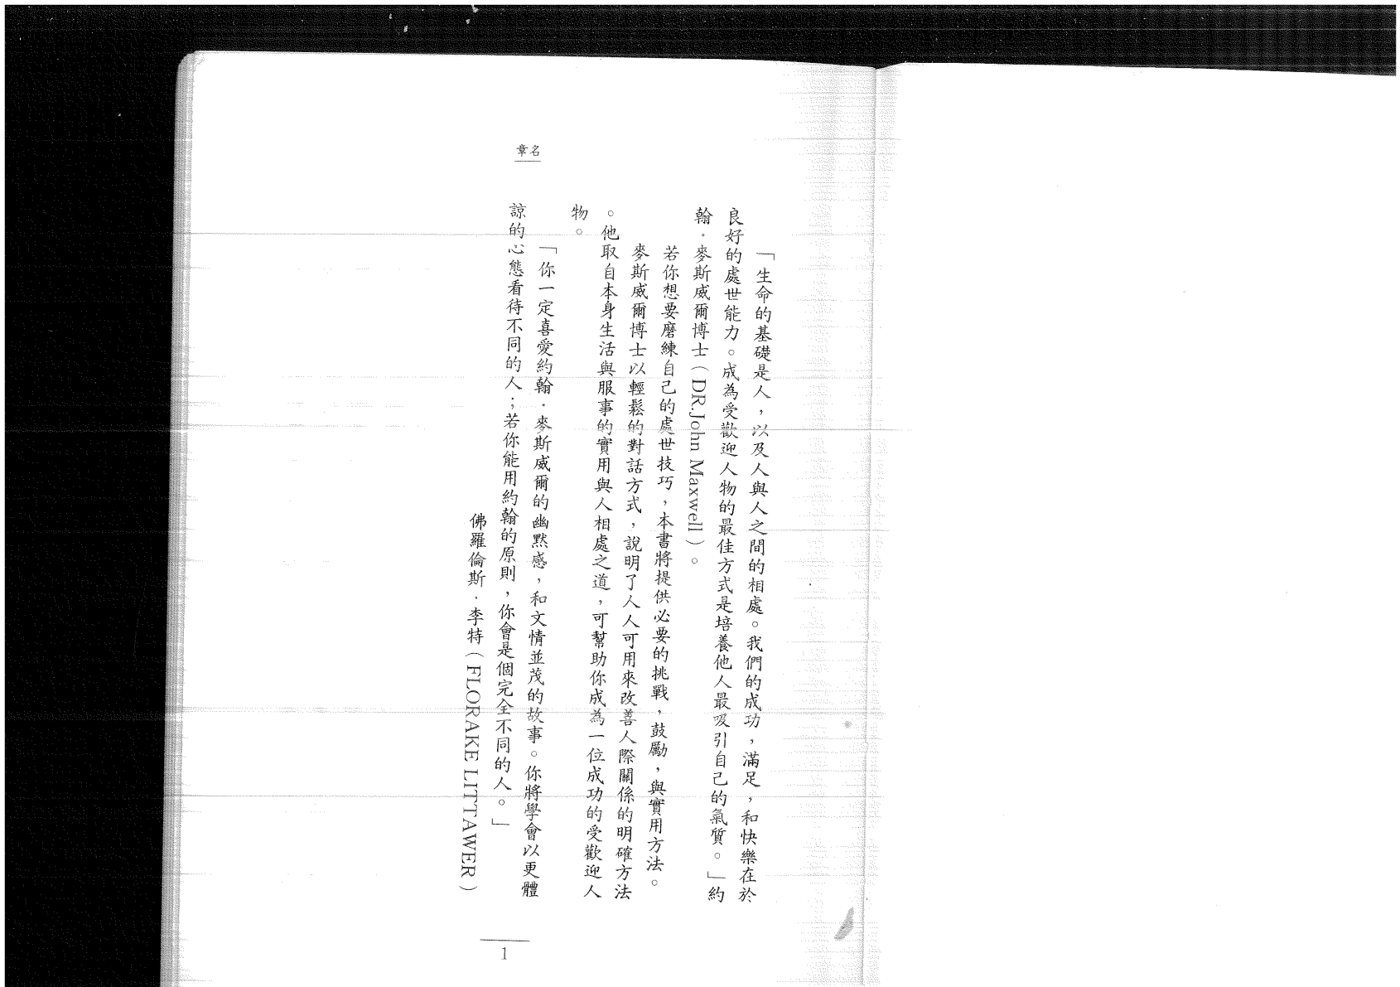 章名
「生命的基礎是人，以及人與人之間的相處。我們的成功，滿足，和快樂在於
良好的處世能力。成為受歡迎人物的最佳方式是培養他人最吸引自己的氣質。」約
翰．麥斯威爾博士（DR.John Maxwell）。
若你想要磨練自己的處世技巧，本書將提供必要的挑戰，鼓勵，與實用方法。
麥斯威爾博士以輕鬆的對話方式，說明了人人可用來改善人際關係的明確方法
。他取自本身生活與服事的實用與人相處之道，可幫助你成為一位成功的受歡迎人
物。
「你一定喜愛約翰．麥斯威爾的幽默感，和文情並茂的故事。你將學會以更體
諒的心態看待不同的人；若你能用約翰的原則，你會是個完全不同的人。」
佛羅倫斯．李特（FLORAKE LITTAWER）
1